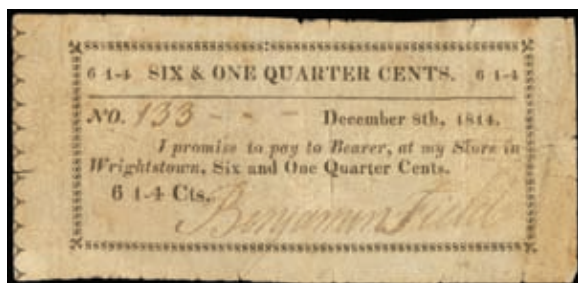 6 1-4 SIX & ONE QUARTER CENTS. 6 1-4
NO. 133 - - - December 8th, 1814.
I promise to pay to Bearer, at my Store in
Wrightstown, Six and One Quarter Cents.
6 1-4 Cts.
Benjamin Field